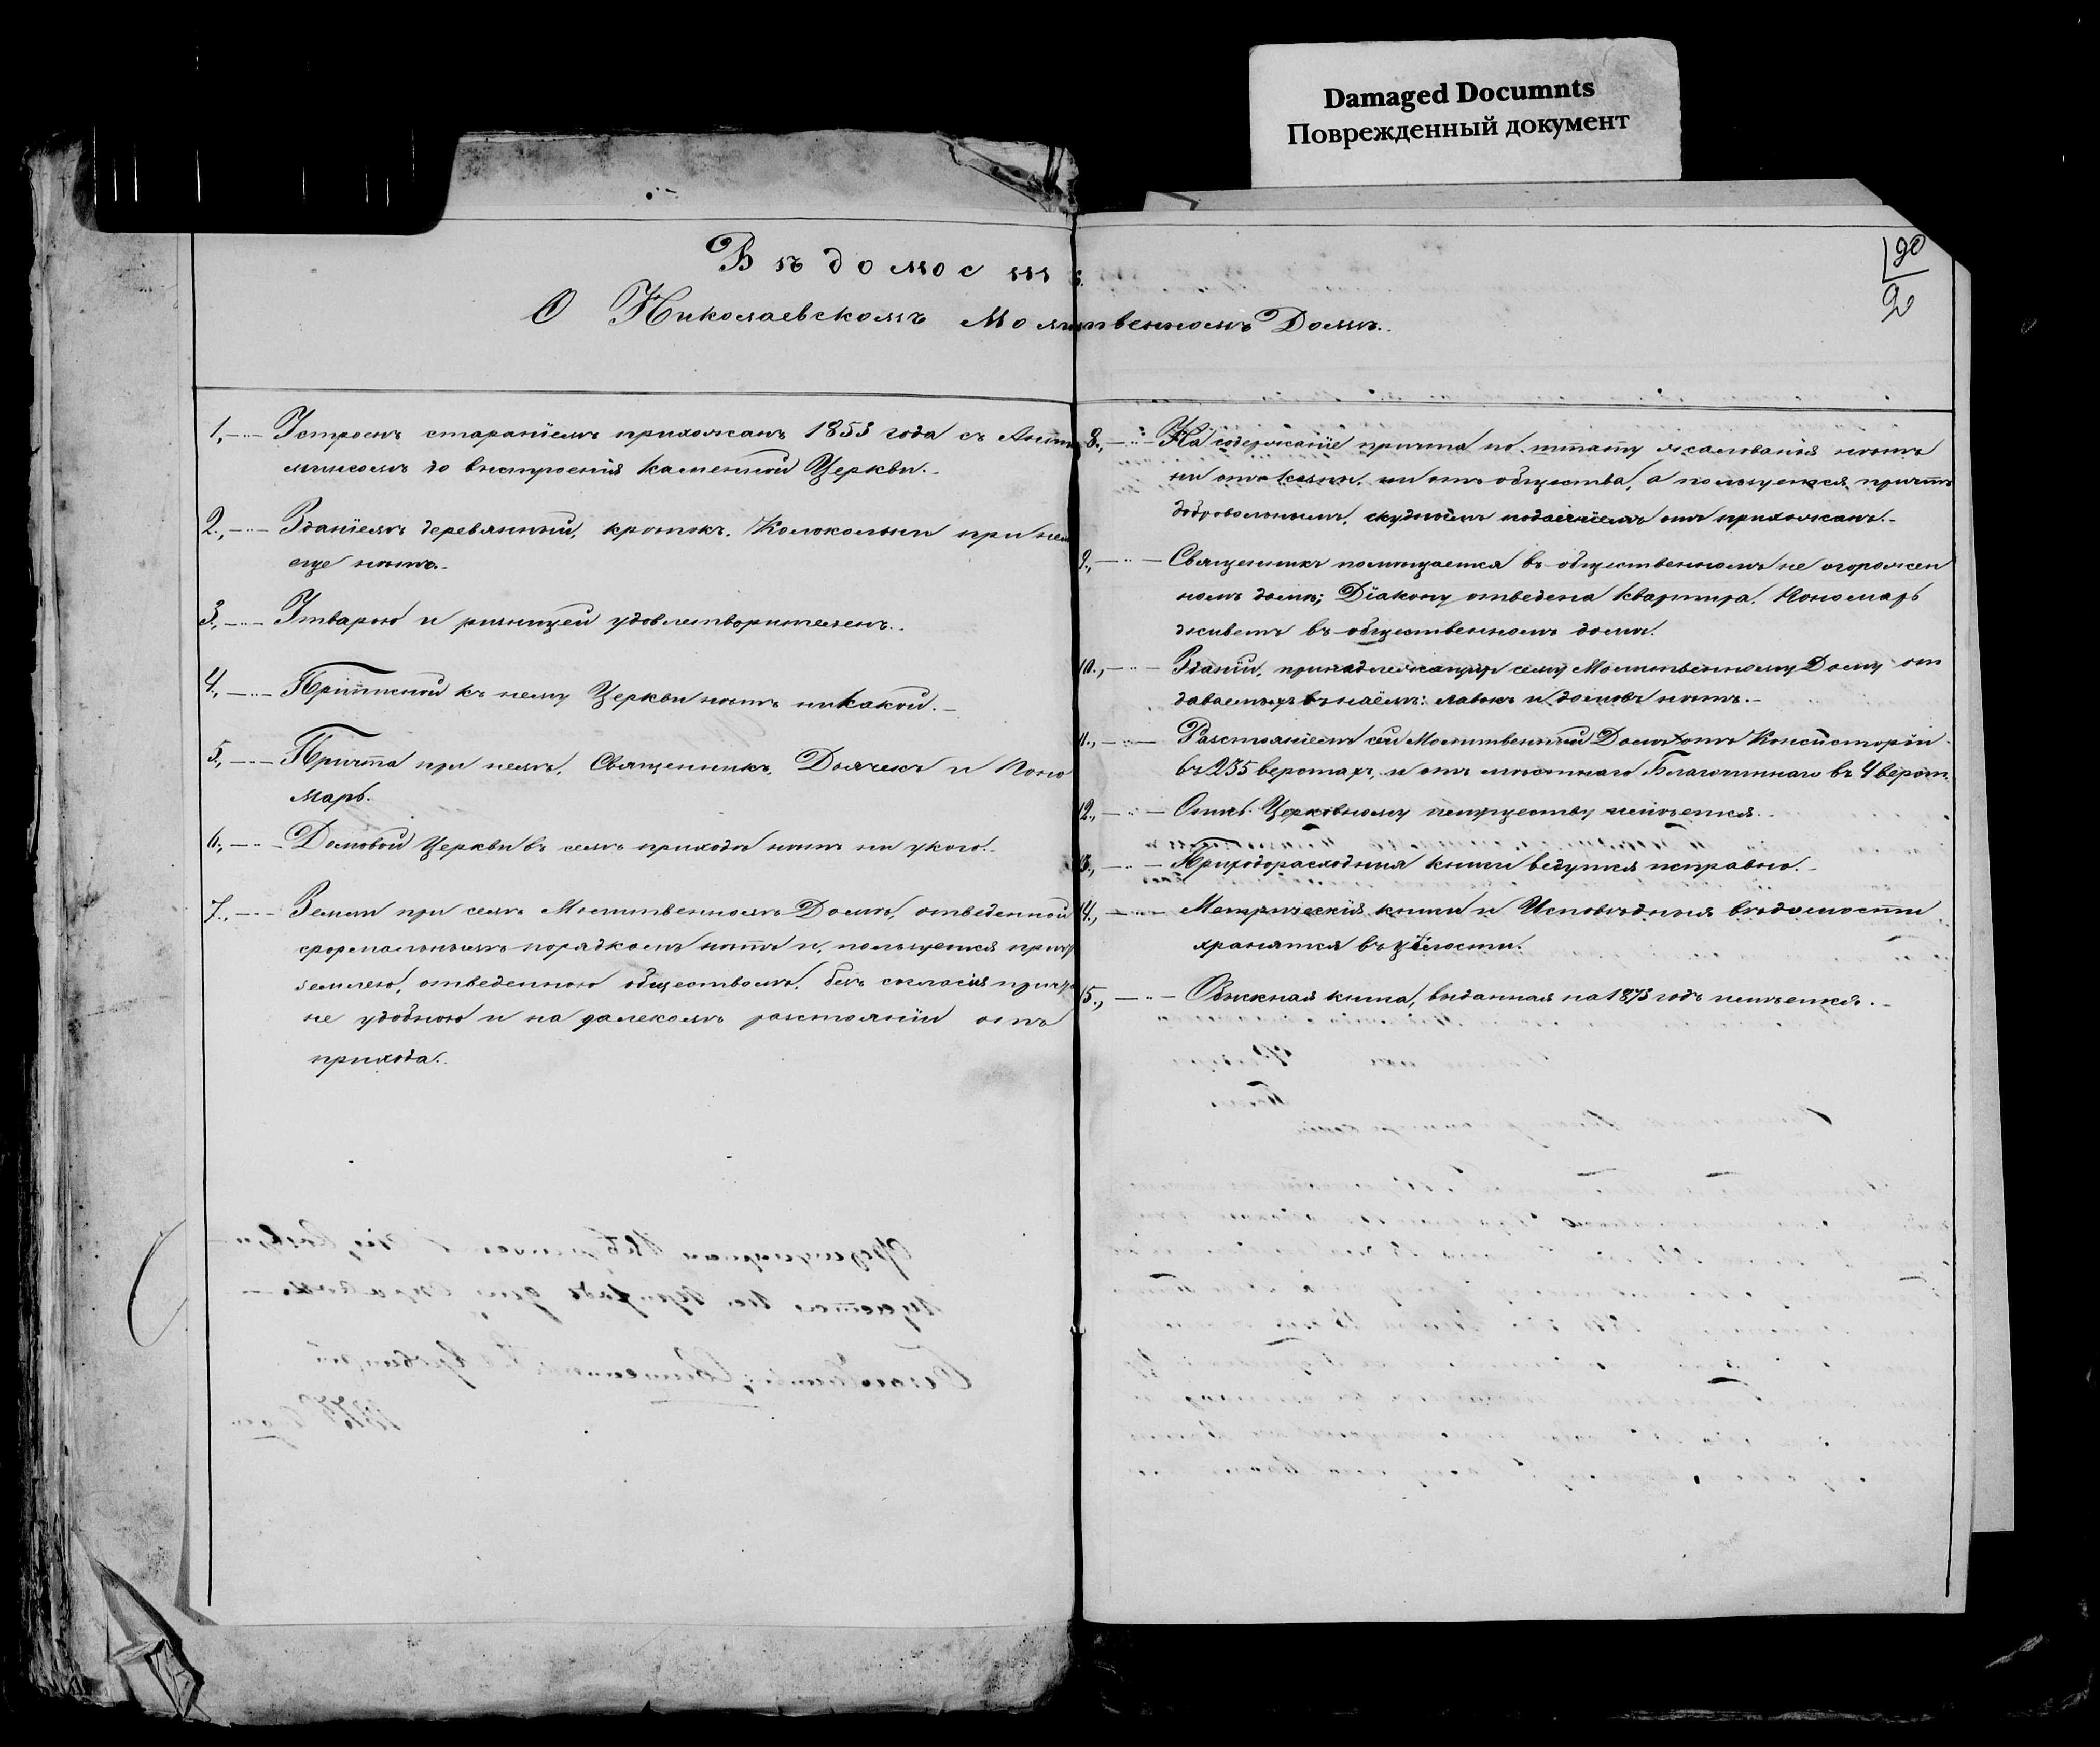 Damaged Documnts
Поврежденный документ
20
2
Вѣдомость
О Николаевскомъ Молитвенномъ Домѣ.
1., Устроенъ стараніемъ прихожанъ 1853 года съ Анти
минсомъ до выстроенія каменной Церкви.
2., Зданіемъ деревянный, крѣпокъ. Колокольни при нем
еще нѣтъ.
3., Утварью и ризницей удовлетворителенъ.
4., Приписной къ нему Церкви нѣтъ никакой.
5., Причта при немъ, Священникъ, Дьячекъ и Поно
марь.
6., Домовой Церкви въ семъ приходѣ нѣтъ ни у кого.
7., Земли при семъ Молитвенномъ Домѣ, отведенной
формальнымъ порядкомъ нѣтъ и, пользуется
землею, отведенною обществомъ, безъ согласія
не удобною и на далекомъ разстояніи отъ
прихода.
8., На содержаніе причта по штату жалованья нѣтъ
ни отъ казны, ни отъ общества, а пользуется причтъ
добровольнымъ, скуднымъ подаяніемъ отъ прихожанъ.
9., Священникъ помѣщается въ общественномъ не огорожен
номъ домѣ; Діакону отведена квартира, Пономарь
живетъ въ общественномъ домѣ.
10., Зданій, принадлежащихъ сему Молитвенному Дому от
даваемыхъ въ наёмъ: лавокъ и домовъ нѣтъ.
11., Разстояніемъ сей Молитвенный Домъ отъ Консисторіи
въ 235 верстахъ, и отъ мѣстнаго Благочиннаго въ 4 верст.
12., Опись Церковному имуществу имѣется.
13., Приходорасходныя книги ведутся исправно.
14., Метрическія книги и Исповѣдныя вѣдомости
хранятся въ цѣлости.
15., Обыскная книга, выданная на 1873 годъ имѣется.